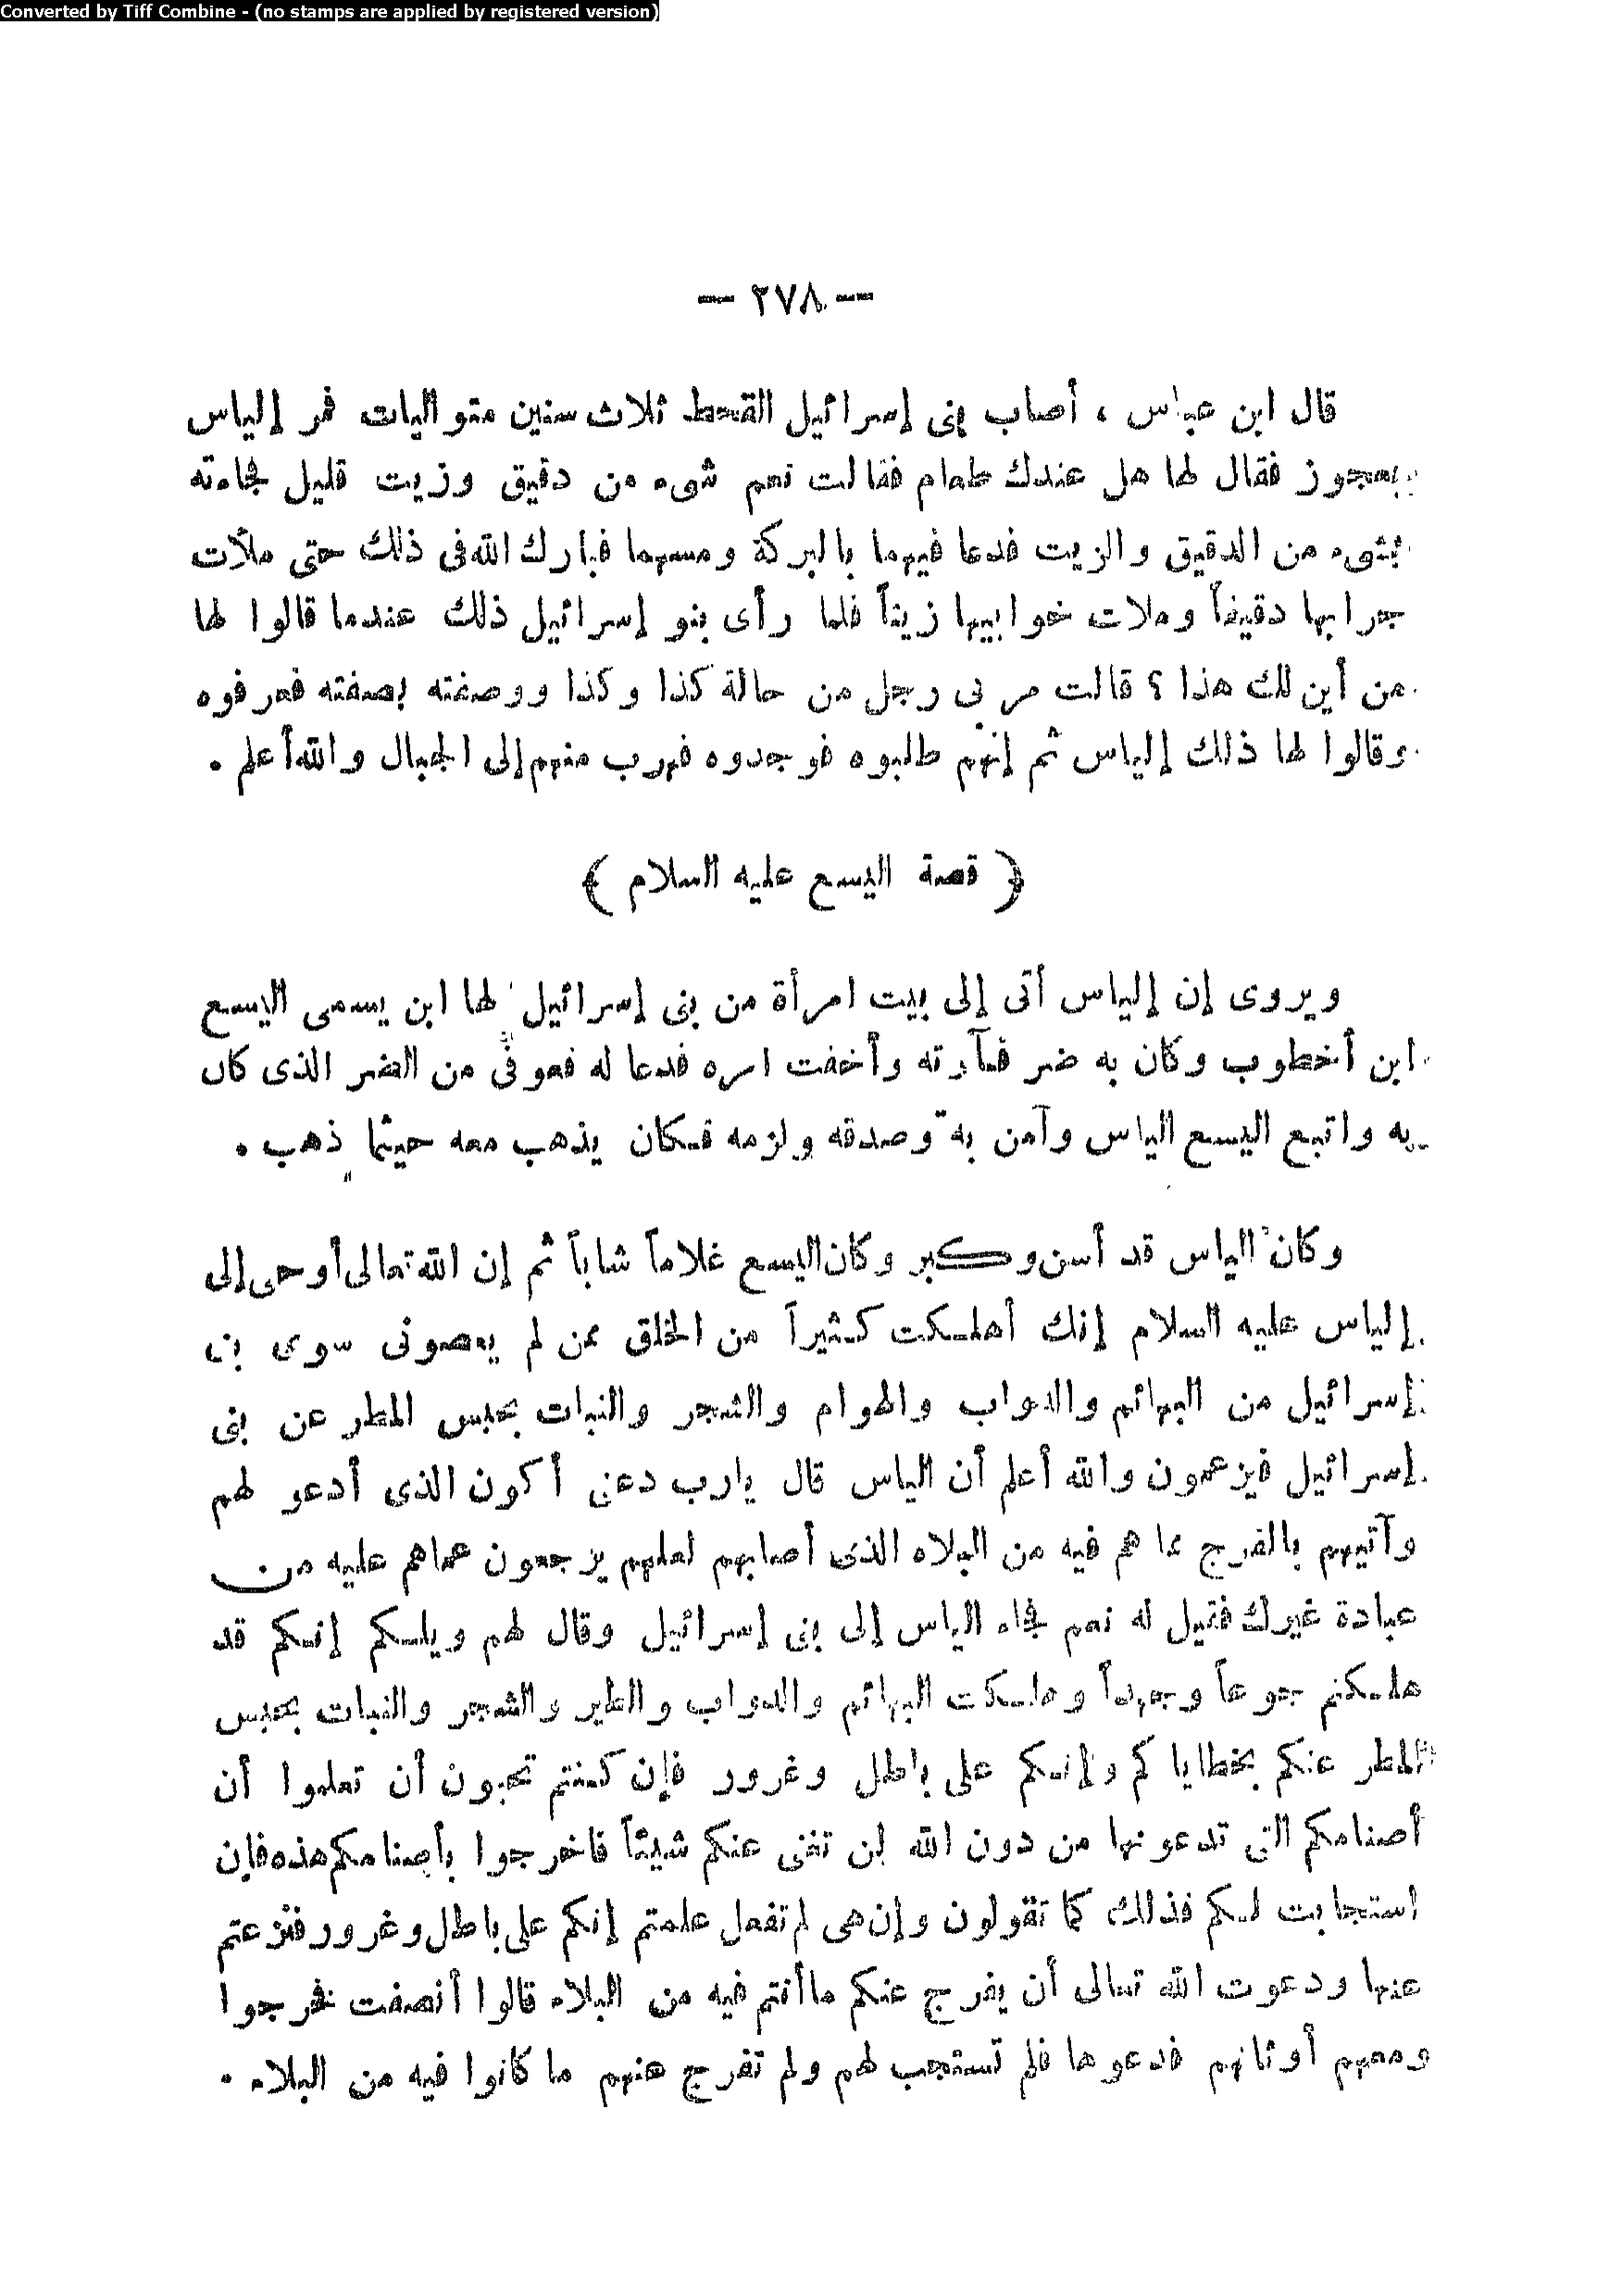 Converted by Tiff Combine - (no stamps are applied by registered version)
— ٢٧٨ —
قال ابن عباس ، أصاب بنى إسرائيل القحط ثلاث سنين متواليات فمر إلياس
بعجوز فقال لها هل عندك طعام فقالت نعم شىء من دقيق وزيت قليل فجاءته
بشىء من الدقيق والزيت فدعا فيهما بالبركة ومسهما فبارك الله فى ذلك حتى ملأت
جرابها دقيقاً وملات خوابيها زيتاً فلما رأى بنو إسرائيل ذلك عندما قالوا لها
من أين لك هذا ؟ قالت مر بى رجل من حالة كذا وكذا ووصفته بصفته فعرفوه
وقالوا لها ذلك إلياس ثم إنهم طلبوه فوجدوه فهرب منهم إلى الجبال والله أعلم .
﴿ قصة اليسع عليه السلام ﴾
ويروى إن إلياس أتى إلى بيت امرأة من بنى إسرائيل لها ابن يسمى اليسع
ابن أخطوب وكان به ضر فآوته وأخفت امره فدعا له فعوفى من الضر الذى كان
به واتبع اليسع الياس وآمن به وصدقه ولزمه فكان يذهب معه حيثما ذهب .
وكان الياس قد أسن وكبر وكان اليسع غلاماً شاباً ثم إن الله تعالى أوحى إلى
إلياس عليه السلام إنك أهلكت كثيراً من الخلق ممن لم يعصونى سوى بن
إسرائيل من البهائم والدواب والهوام والشجر والنبات بحبس المطر عن بنى
إسرائيل فيزعمون والله أعلم أن الياس قال يارب دعنى أكون الذى أدعو لهم
وآتيهم بالفرج مما هم فيه من البلاء الذى أصابهم لعلهم يرجعون عماهم عليه من
عبادة غيرك فقيل له نعم فجاء الياس إلى بنى إسرائيل وقال لهم ويلكم إنكم قد
هلكتم جوعاً وجهداً وهلكت البهائم والدواب والطير والشجر والنبات بحبس
المطر عنكم بخطاياكم وإنكم على باطل وغرور فإن كنتم تحبون أن تعلموا أن
أصنامكم التى تدعونها من دون الله لن تغنى عنكم شيئاً فاخرجوا بأصنامكم هذه فإن
استجابت لكم فذلك كما تقولون وإن هى لم تفعل علمتم إنكم على باطل وغرور فنزعتم
عنها ودعوت الله تعالى أن يفرج عنكم ما أنتم فيه من البلاء قالوا أنصفت فخرجوا
ومعهم أوثانهم فدعوها فلم تستجب لهم ولم تفرج عنهم ما كانوا فيه من البلاء .